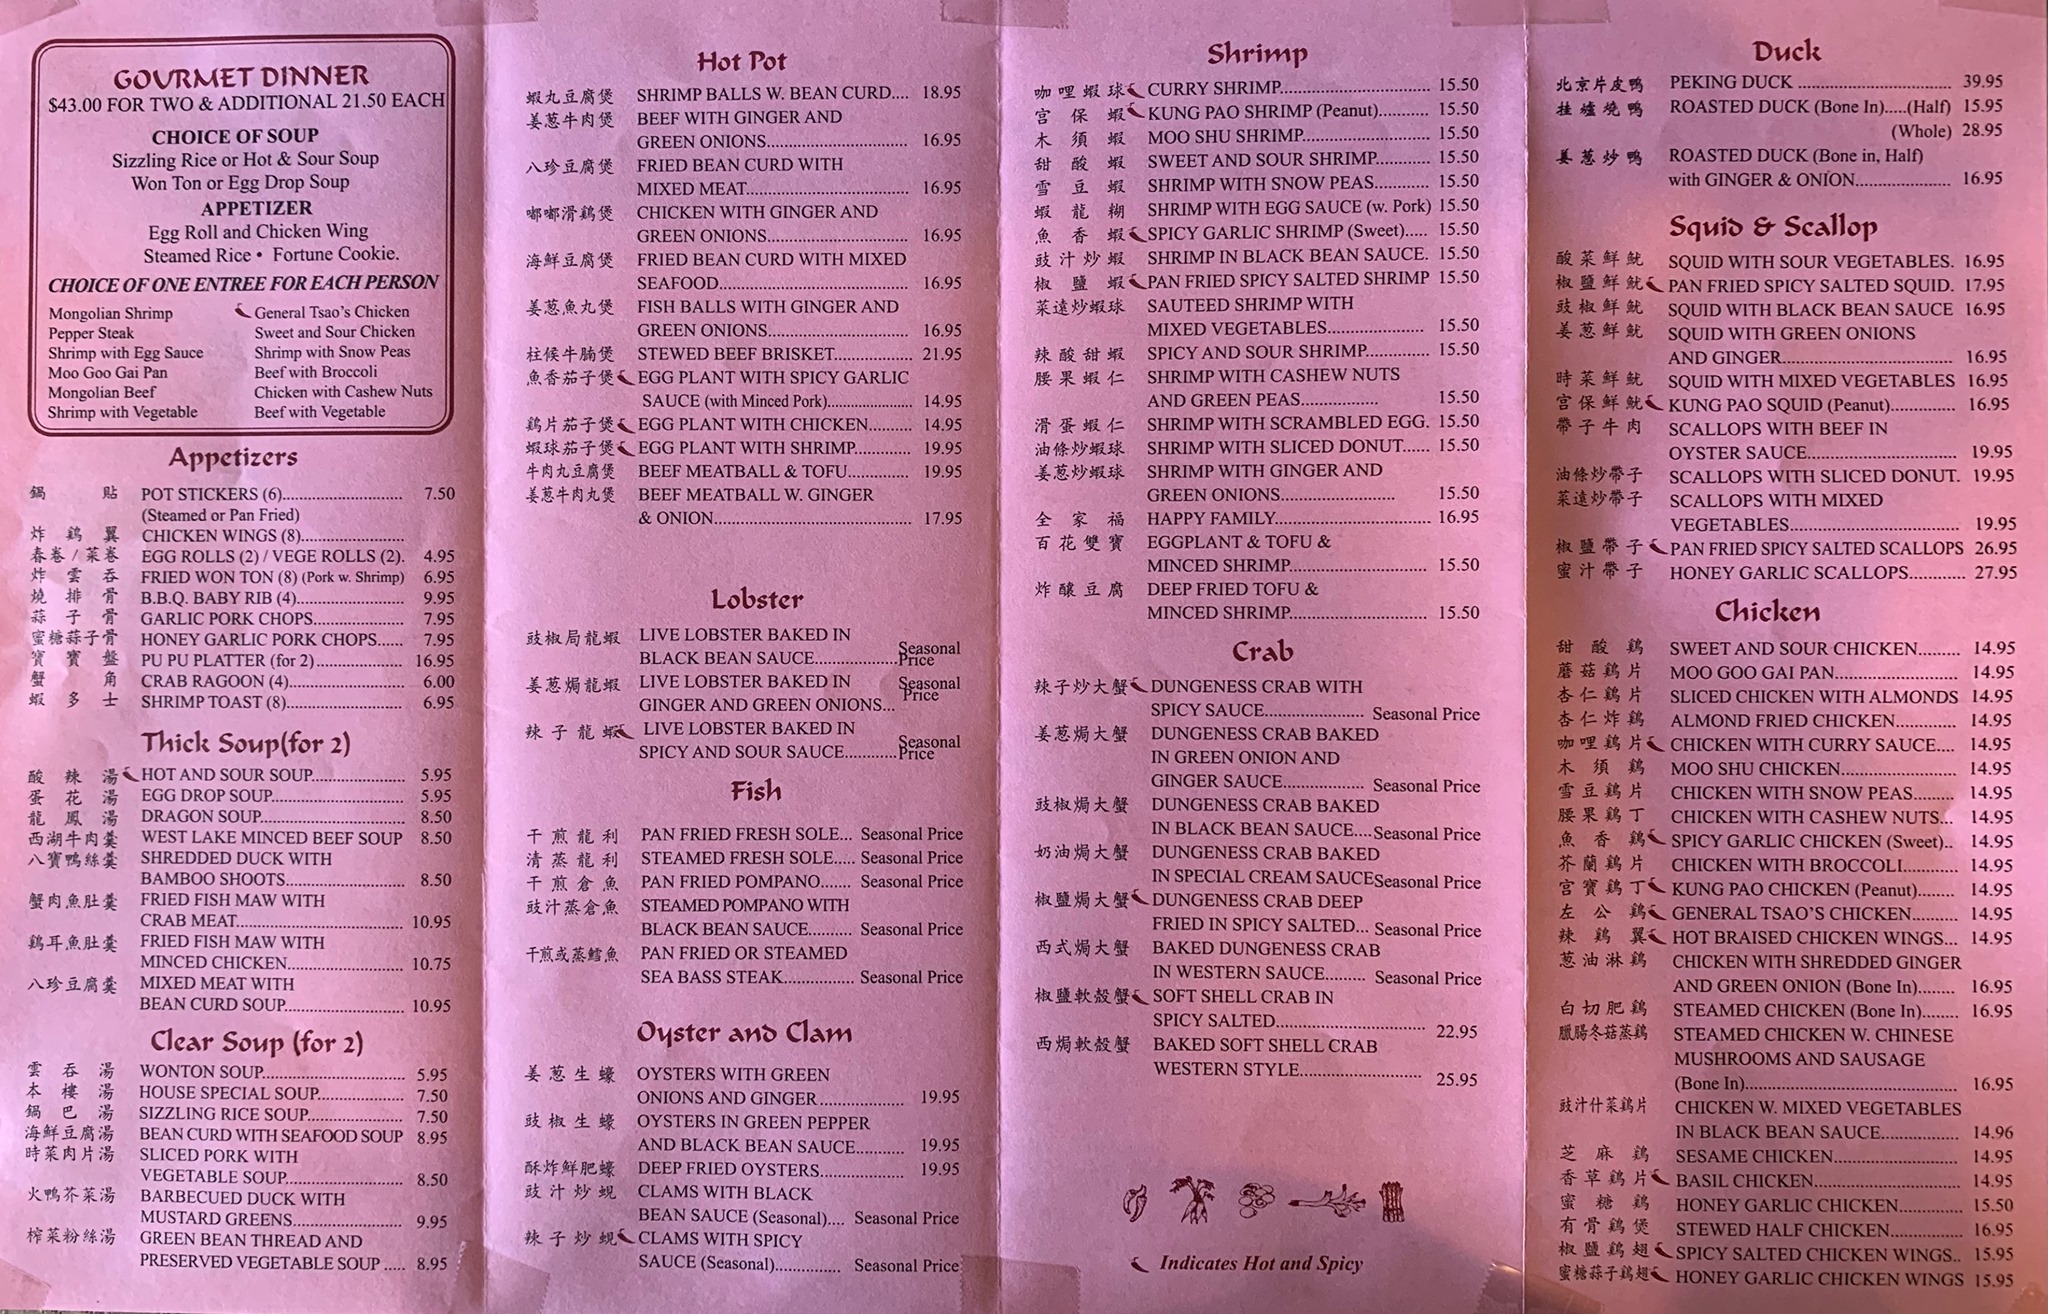 GOURMET DINNER
$43.00 FOR TWO & ADDITIONAL 21.50 EACH
CHOICE OF SOUP
Sizzling Rice or Hot & Sour Soup
Won Ton or Egg Drop Soup
APPETIZER
Egg Roll and Chicken Wing
Steamed Rice • Fortune Cookie.
CHOICE OF ONE ENTREE FOR EACH PERSON
Mongolian Shrimp General Tsao's Chicken
Pepper Steak Sweet and Sour Chicken
Shrimp with Egg Sauce Shrimp with Snow Peas
Moo Goo Gai Pan Beef with Broccoli
Mongolian Beef Chicken with Cashew Nuts
Shrimp with Vegetable Beef with Vegetable
Appetizers
鍋貼 POT STICKERS (6)............ 7.50
(Steamed or Pan Fried)
炸鷄翼 CHICKEN WINGS (8)............
春卷/菜卷 EGG ROLLS (2) / VEGE ROLLS (2). 4.95
炸雲吞 FRIED WON TON (8) (Pork w. Shrimp) 6.95
燒排骨 B.B.Q. BABY RIB (4)............ 9.95
蒜子骨 GARLIC PORK CHOPS............ 7.95
蜜糖蒜子骨 HONEY GARLIC PORK CHOPS..... 7.95
寶寶盤 PU PU PLATTER (for 2)............ 16.95
蟹角 CRAB RAGOON (4)............ 6.00
蝦多士 SHRIMP TOAST (8)............ 6.95
Thick Soup(for 2)
酸辣湯 HOT AND SOUR SOUP............ 5.95
蛋花湯 EGG DROP SOUP............ 5.95
龍鳳湯 DRAGON SOUP............ 8.50
西湖牛肉羹 WEST LAKE MINCED BEEF SOUP 8.50
八寶鴨絲羹 SHREDDED DUCK WITH
BAMBOO SHOOTS............ 8.50
蟹肉魚肚羹 FRIED FISH MAW WITH
CRAB MEAT............ 10.95
鷄耳魚肚羹 FRIED FISH MAW WITH
MINCED CHICKEN............ 10.75
八珍豆腐羹 MIXED MEAT WITH
BEAN CURD SOUP............ 10.95
Clear Soup (for 2)
雲吞湯 WONTON SOUP............ 5.95
本樓湯 HOUSE SPECIAL SOUP............ 7.50
鍋巴湯 SIZZLING RICE SOUP............ 7.50
海鮮豆腐湯 BEAN CURD WITH SEAFOOD SOUP 8.95
時菜肉片湯 SLICED PORK WITH
VEGETABLE SOUP............ 8.50
火鴨芥菜湯 BARBECUED DUCK WITH
MUSTARD GREENS............ 9.95
榨菜粉絲湯 GREEN BEAN THREAD AND
PRESERVED VEGETABLE SOUP ..... 8.95
Hot Pot
蝦丸豆腐煲 SHRIMP BALLS W. BEAN CURD.... 18.95
姜葱牛肉煲 BEEF WITH GINGER AND
GREEN ONIONS............ 16.95
八珍豆腐煲 FRIED BEAN CURD WITH
MIXED MEAT............ 16.95
嘟嘟滑鷄煲 CHICKEN WITH GINGER AND
GREEN ONIONS............ 16.95
海鮮豆腐煲 FRIED BEAN CURD WITH MIXED
SEAFOOD............ 16.95
姜葱魚丸煲 FISH BALLS WITH GINGER AND
GREEN ONIONS............ 16.95
柱候牛腩煲 STEWED BEEF BRISKET............ 21.95
魚香茄子煲 EGG PLANT WITH SPICY GARLIC
SAUCE (with Minced Pork)............ 14.95
鷄片茄子煲 EGG PLANT WITH CHICKEN......... 14.95
蝦球茄子煲 EGG PLANT WITH SHRIMP............ 19.95
牛肉丸豆腐煲 BEEF MEATBALL & TOFU............ 19.95
姜葱牛肉丸煲 BEEF MEATBALL W. GINGER
& ONION............ 17.95
Lobster
豉椒局龍蝦 LIVE LOBSTER BAKED IN
BLACK BEAN SAUCE............ Seasonal Price
姜葱焗龍蝦 LIVE LOBSTER BAKED IN
GINGER AND GREEN ONIONS... Seasonal Price
辣子龍蝦 LIVE LOBSTER BAKED IN
SPICY AND SOUR SAUCE............ Seasonal Price
Fish
干煎龍利 PAN FRIED FRESH SOLE... Seasonal Price
清蒸龍利 STEAMED FRESH SOLE..... Seasonal Price
干煎倉魚 PAN FRIED POMPANO....... Seasonal Price
豉汁蒸倉魚 STEAMED POMPANO WITH
BLACK BEAN SAUCE.......... Seasonal Price
干煎或蒸鱈魚 PAN FRIED OR STEAMED
SEA BASS STEAK............ Seasonal Price
Oyster and Clam
姜葱生蠔 OYSTERS WITH GREEN
ONIONS AND GINGER............ 19.95
豉椒生蠔 OYSTERS IN GREEN PEPPER
AND BLACK BEAN SAUCE........... 19.95
酥炸鮮肥蠔 DEEP FRIED OYSTERS............ 19.95
豉汁炒蜆 CLAMS WITH BLACK
BEAN SAUCE (Seasonal).... Seasonal Price
辣子炒蜆 CLAMS WITH SPICY
SAUCE (Seasonal)............ Seasonal Price
Shrimp
咖哩蝦球 CURRY SHRIMP............ 15.50
宮保蝦 KUNG PAO SHRIMP (Peanut)........... 15.50
木須蝦 MOO SHU SHRIMP............ 15.50
甜酸蝦 SWEET AND SOUR SHRIMP............ 15.50
雪豆蝦 SHRIMP WITH SNOW PEAS............ 15.50
蝦龍糊 SHRIMP WITH EGG SAUCE (w. Pork) 15.50
魚香蝦 SPICY GARLIC SHRIMP (Sweet)..... 15.50
豉汁炒蝦 SHRIMP IN BLACK BEAN SAUCE. 15.50
椒鹽蝦 PAN FRIED SPICY SALTED SHRIMP 15.50
菜遠炒蝦球 SAUTEED SHRIMP WITH
MIXED VEGETABLES............ 15.50
辣酸甜蝦 SPICY AND SOUR SHRIMP............ 15.50
腰果蝦仁 SHRIMP WITH CASHEW NUTS
AND GREEN PEAS............ 15.50
滑蛋蝦仁 SHRIMP WITH SCRAMBLED EGG. 15.50
油條炒蝦球 SHRIMP WITH SLICED DONUT...... 15.50
姜葱炒蝦球 SHRIMP WITH GINGER AND
GREEN ONIONS............ 15.50
全家福 HAPPY FAMILY............ 16.95
百花雙寶 EGGPLANT & TOFU &
MINCED SHRIMP............ 15.50
炸釀豆腐 DEEP FRIED TOFU &
MINCED SHRIMP............ 15.50
Crab
辣子炒大蟹 DUNGENESS CRAB WITH
SPICY SAUCE............ Seasonal Price
姜葱焗大蟹 DUNGENESS CRAB BAKED
IN GREEN ONION AND
GINGER SAUCE............ Seasonal Price
豉椒焗大蟹 DUNGENESS CRAB BAKED
IN BLACK BEAN SAUCE.... Seasonal Price
奶油焗大蟹 DUNGENESS CRAB BAKED
IN SPECIAL CREAM SAUCE Seasonal Price
椒鹽焗大蟹 DUNGENESS CRAB DEEP
FRIED IN SPICY SALTED... Seasonal Price
西式焗大蟹 BAKED DUNGENESS CRAB
IN WESTERN SAUCE......... Seasonal Price
椒鹽軟殼蟹 SOFT SHELL CRAB IN
SPICY SALTED............ 22.95
西焗軟殼蟹 BAKED SOFT SHELL CRAB
WESTERN STYLE............ 25.95
Indicates Hot and Spicy
Duck
北京片皮鴨 PEKING DUCK ............ 39.95
挂爐燒鴨 ROASTED DUCK (Bone In).....(Half) 15.95
(Whole) 28.95
姜葱炒鴨 ROASTED DUCK (Bone in, Half)
with GINGER & ONION............ 16.95
Squid & Scallop
酸菜鮮魷 SQUID WITH SOUR VEGETABLES. 16.95
椒鹽鮮魷 PAN FRIED SPICY SALTED SQUID. 17.95
豉椒鮮魷 SQUID WITH BLACK BEAN SAUCE 16.95
姜葱鮮魷 SQUID WITH GREEN ONIONS
AND GINGER............ 16.95
時菜鮮魷 SQUID WITH MIXED VEGETABLES 16.95
宮保鮮魷 KUNG PAO SQUID (Peanut)............ 16.95
帶子牛肉 SCALLOPS WITH BEEF IN
OYSTER SAUCE............ 19.95
油條炒帶子 SCALLOPS WITH SLICED DONUT. 19.95
菜遠炒帶子 SCALLOPS WITH MIXED
VEGETABLES............ 19.95
椒鹽帶子 PAN FRIED SPICY SALTED SCALLOPS 26.95
蜜汁帶子 HONEY GARLIC SCALLOPS............ 27.95
Chicken
甜酸鷄 SWEET AND SOUR CHICKEN......... 14.95
蘑菇鷄片 MOO GOO GAI PAN............ 14.95
杏仁鷄片 SLICED CHICKEN WITH ALMONDS 14.95
杏仁炸鷄 ALMOND FRIED CHICKEN............ 14.95
咖哩鷄片 CHICKEN WITH CURRY SAUCE.... 14.95
木須鷄 MOO SHU CHICKEN............ 14.95
雪豆鷄片 CHICKEN WITH SNOW PEAS......... 14.95
腰果鷄丁 CHICKEN WITH CASHEW NUTS... 14.95
魚香鷄 SPICY GARLIC CHICKEN (Sweet).. 14.95
芥蘭鷄片 CHICKEN WITH BROCCOLI............ 14.95
宮寶鷄丁 KUNG PAO CHICKEN (Peanut)........ 14.95
左公鷄 GENERAL TSAO'S CHICKEN.......... 14.95
辣鷄翼 HOT BRAISED CHICKEN WINGS... 14.95
葱油淋鷄 CHICKEN WITH SHREDDED GINGER
AND GREEN ONION (Bone In)........ 16.95
白切肥鷄 STEAMED CHICKEN (Bone In)....... 16.95
臘腸冬菇蒸鷄 STEAMED CHICKEN W. CHINESE
MUSHROOMS AND SAUSAGE
(Bone In)............ 16.95
豉汁什菜鷄片 CHICKEN W. MIXED VEGETABLES
IN BLACK BEAN SAUCE............ 14.96
芝麻鷄 SESAME CHICKEN............ 14.95
香草鷄片 BASIL CHICKEN............ 14.95
蜜糖鷄 HONEY GARLIC CHICKEN............ 15.50
有骨鷄煲 STEWED HALF CHICKEN............ 16.95
椒鹽鷄翅 SPICY SALTED CHICKEN WINGS.. 15.95
蜜糖蒜子鷄翅 HONEY GARLIC CHICKEN WINGS 15.95